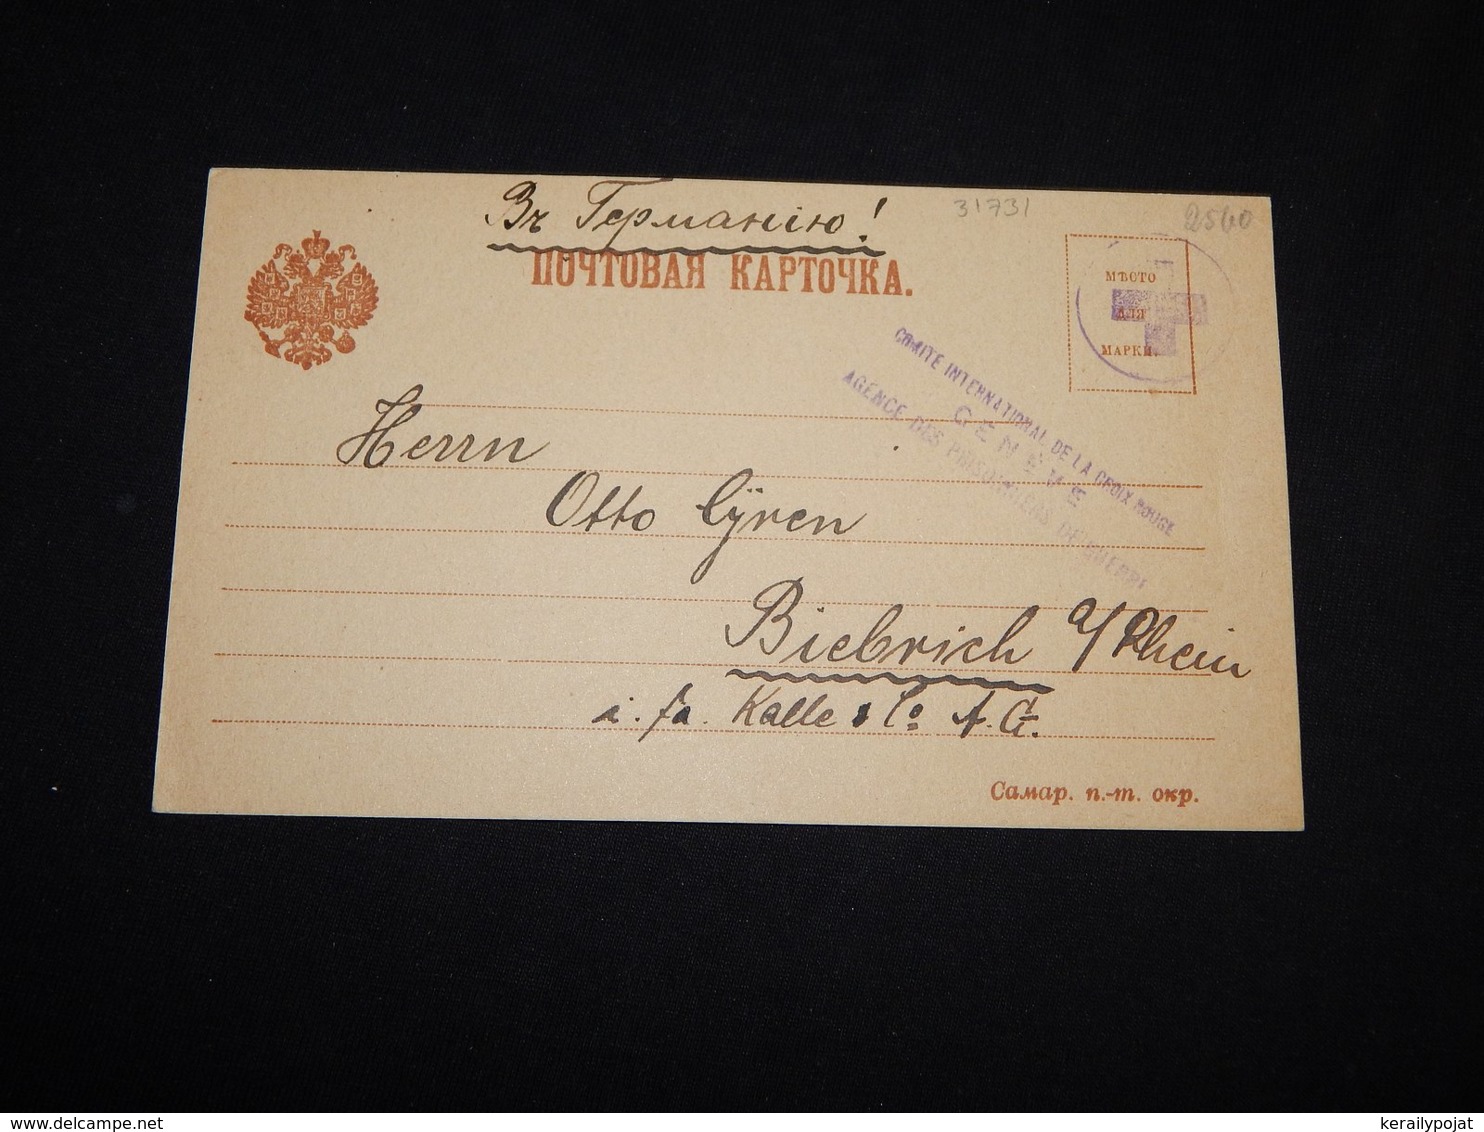 Въ Германію!
31731
2560
ПОЧТОВАЯ КАРТОЧКА.
МѢСТО
ДЛЯ
МАРКИ.
COMITE INTERNATIONAL DE LA CROIX ROUGE
GENÈVE
AGENCE DES PRISONNIERS DE GUERRE
Herrn
Otto Cÿren
Biebrich a/Rhein
i. fa. Kalle & Co A.G.
Самар. п.-т. окр.
www.delcampe.net
kerailypojat